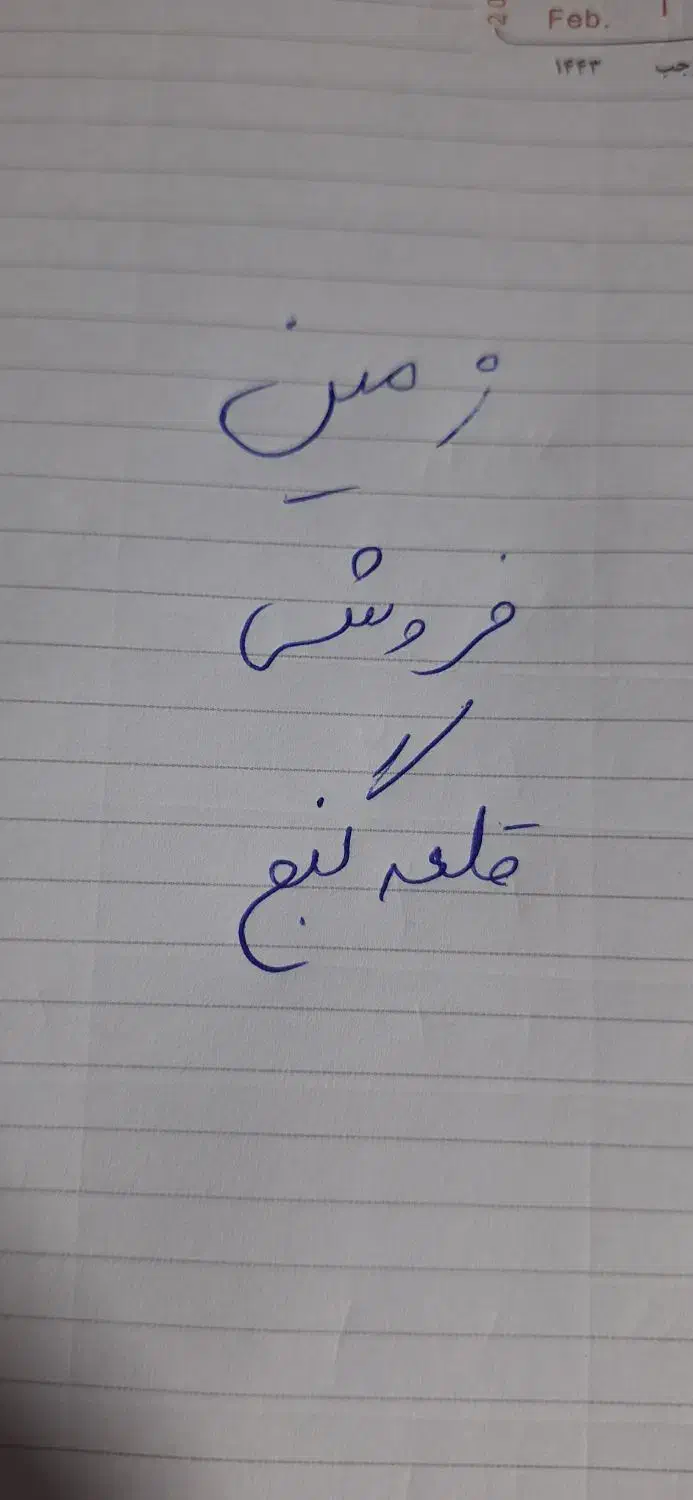 20
Feb.
۱۴۴۳
زمین
فروش
قلعه گنج